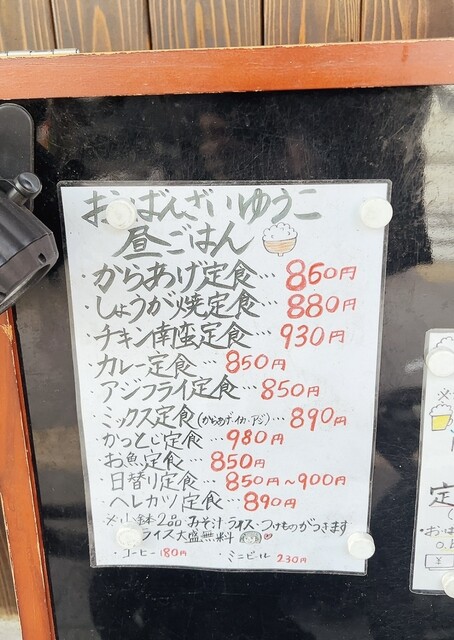 おばんざいゆうこ
昼ごはん
・からあげ定食… 860円
・しょうが焼定食… 880円
チキン南蛮定食… 930円
カレー定食 850円
アジフライ定食… 850円
・ミックス定食(からあげ・イカ・アジ)… 890円
・かつとじ定食… 980円
お魚定食 850円
・日替り定食… 850円～900円
・ヘレカツ定食… 890円
※小鉢2品 みそ汁 ライス・つけものがつきます
ライス大盛無料
・コーヒー 180円 ・ミニビール 230円
定
・お